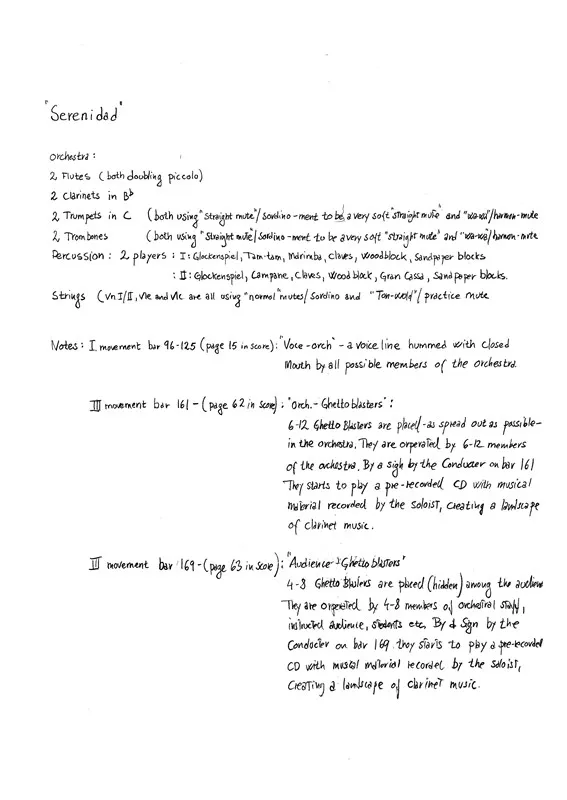 "Serenidad"
Orchestra:
2 Flutes (both doubling piccolo)
2 Clarinets in Bb
2 Trumpets in C (both using "Straight mute"/Sordino -ment to be a very soft "straight mute" and "wa-wa"/harmon-mute
2 Trombones (both using "Straight mute"/Sordino -ment to be a very soft "straight mute" and "wa-wa"/harmon-mute
Percussion: 2 players: I: Glockenspiel, Tam-tam, Marimba, Claves, Woodblock, Sandpaper blocks
: II: Glockenspiel, Campane, Claves, Wood block, Gran Cassa, Sand paper blocks.
Strings (Vn I/II, Vle and Vlc are all using "normal" mutes/Sordino and "Ton-wolf"/practice mute
Notes: I movement bar 96-125 (page 15 in score): "Voce-orch" - a voice line hummed with closed
Mouth by all possible members of the orchestra.
III movement bar 161 - (page 62 in score): "Orch.- Ghetto blasters":
6-12 Ghetto Blasters are placed -as spread out as possible-
in the orchestra. They are orperated by 6-12 members
of the orchestra. By a sign by the Conductor on bar 161
They starts to play a pre-recorded CD with musical
Material recorded by the soloist, creating a landscape
of clarinet music.
III movement bar 169 - (page 63 in score): "Audience - Ghetto blasters"
4-8 Ghetto Blasters are placed (hidden) among the audience
They are orperated by 4-8 members of orchestral staff,
instructed audience, students etc. By a Sign by the
Conductor on bar 169 they starts to play a pre-recorded
CD with musical material recorded by the soloist,
Creating a landscape of clarinet music.